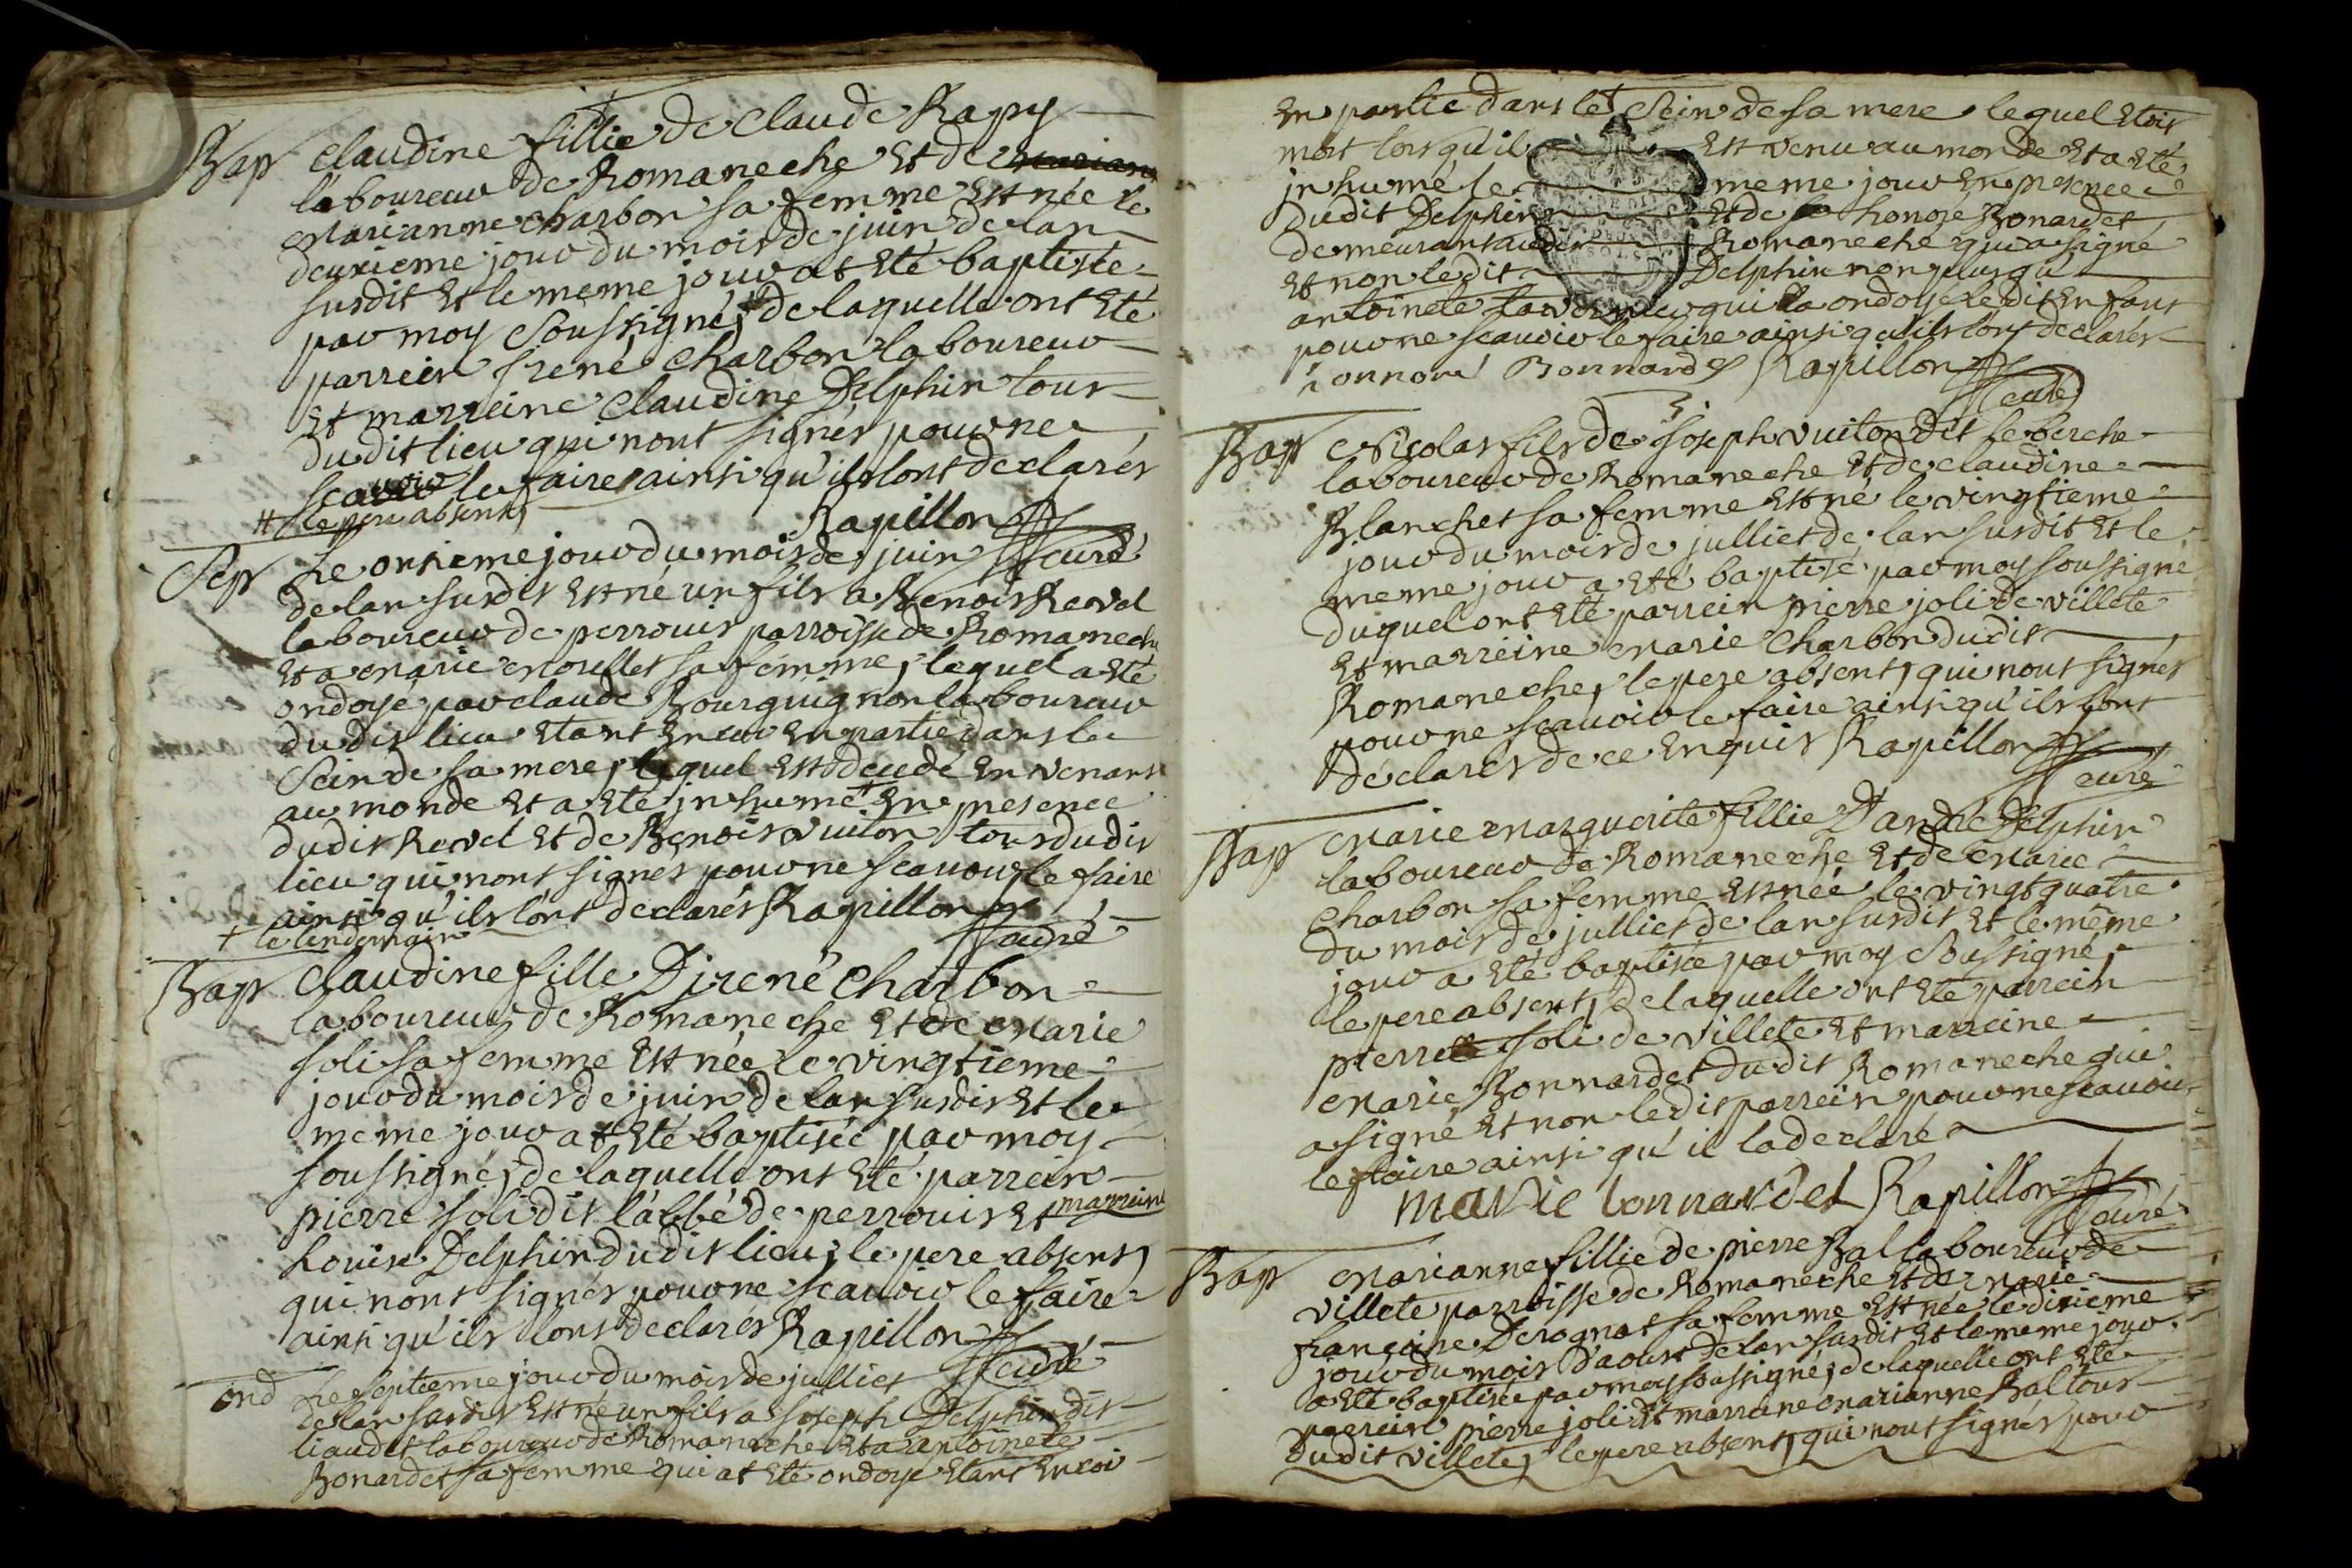 Bap claudine fillie de claude Rapy
laboureur de Romaneche et de mariane
marianne charbon sa femme est née le
deuxieme jour du mois de juin de lan
susdit et le meme jour at eté baptisée
par moy soussigné, de laquelle ont eté
parrein jrené charbon laboureur
et marreine claudine Delphin tous
dudit lieu qui nont signés pour ne
scavoir le faire ainsi qu'ils lont declarés
# le pere absent,
Rapillon
curé
Sep Le onsieme jour du mois de juin
de lan susdit est né un fils a Benoit Revel
laboureur de perrouis parroisse de Romaneche
et a marie morellet sa femme, lequel a eté
ondoyé par claude Bourguignon laboureur
dudit lieu etant encor en partie dans le
sein de sa mere, lequel est decedé en venant
au monde et a eté jnhumé + en presence
dudit Revel et de Benoit vuiton tous dudit
lieu qui nont signés pour ne scavoir le faire
ainsi qu'ils lont declarés Rapillon
curé
+ le lendemain
Bap claudine fille D'jrené charbon
laboureur de Romaneche et de marie
joli sa femme est née le vingtieme
jour du mois de juin de lan susdit et le
meme jour at eté baptisée par moy
soussigné, de laquelle ont eté parrein
pierre joli dit l'abbé de perrouis et marreine
Louise Delphin dudit lieu, le pere absent,
qui nont signés pour ne scavoir le faire
ainsi qu'ils lont declarés Rapillon
curé
ond Le septieme jour du mois de julliet
de lan susdit est né un fils a joseph Delphin dit
liaudet laboureur de Romaneche et a antoinete
Bonardet sa femme qui at eté ondoyé etant encor
en partie dans le sein de sa mere lequel etoit
mort lorsqu'il est venu au monde et a eté
jnhumé le meme jour en presence
dudit Delphin et de honoré Bonardet
demeurant audit Romaneche qui a signé
et non ledit Delphin non plus qu'
antoinete qui a ondoyé ledit enfant
pour ne scavoir le faire ainsi qu'ils lont declarés
honnoré Bonnardet Rapillon
curé
Bap Nicolas fils de joseph vuiton dit le berche
laboureur de Romaneche et de claudine
Blanchet sa femme est né le vingtieme
jour du mois de julliet de lan susdit et le
meme jour a eté baptisé par moy soussigné
duquel ont eté parrein pierre joli de villete
et marreine marie charbon dudit
Romaneche, le pere absent, qui nont signés
pour ne scavoir le faire ainsi qu'ils lont
declarés de ce enquis Rapillon
curé
Bap marie marguerite fillie D'andré Delphin
laboureur de Romaneche et de marie
charbon sa femme est née le vingt quatre
du mois de julliet de lan susdit et le même
jour a eté baptisée par moy soussigné,
le pere absent, de laquelle ont eté parrein
pierre joli de villete et marreine
marie Bonnardet dudit Romaneche qui
a signé et non ledit parrein pour ne scavoir
le faire ainsi qu'il la declaré
marie bonnardet Rapillon
curé
Bap marianne fillie de pierre Bal laboureur de
villete parroisse de Romaneche et de marie
francoise Derognat sa femme est née le dixieme
jour du mois d'aoust de lan susdit et le meme jour
a eté baptisée par moy soussigné, de laquelle ont eté
parrein pierre joli et marreine marianne Bal tous
dudit villete, le pere absent, qui nont signés pour